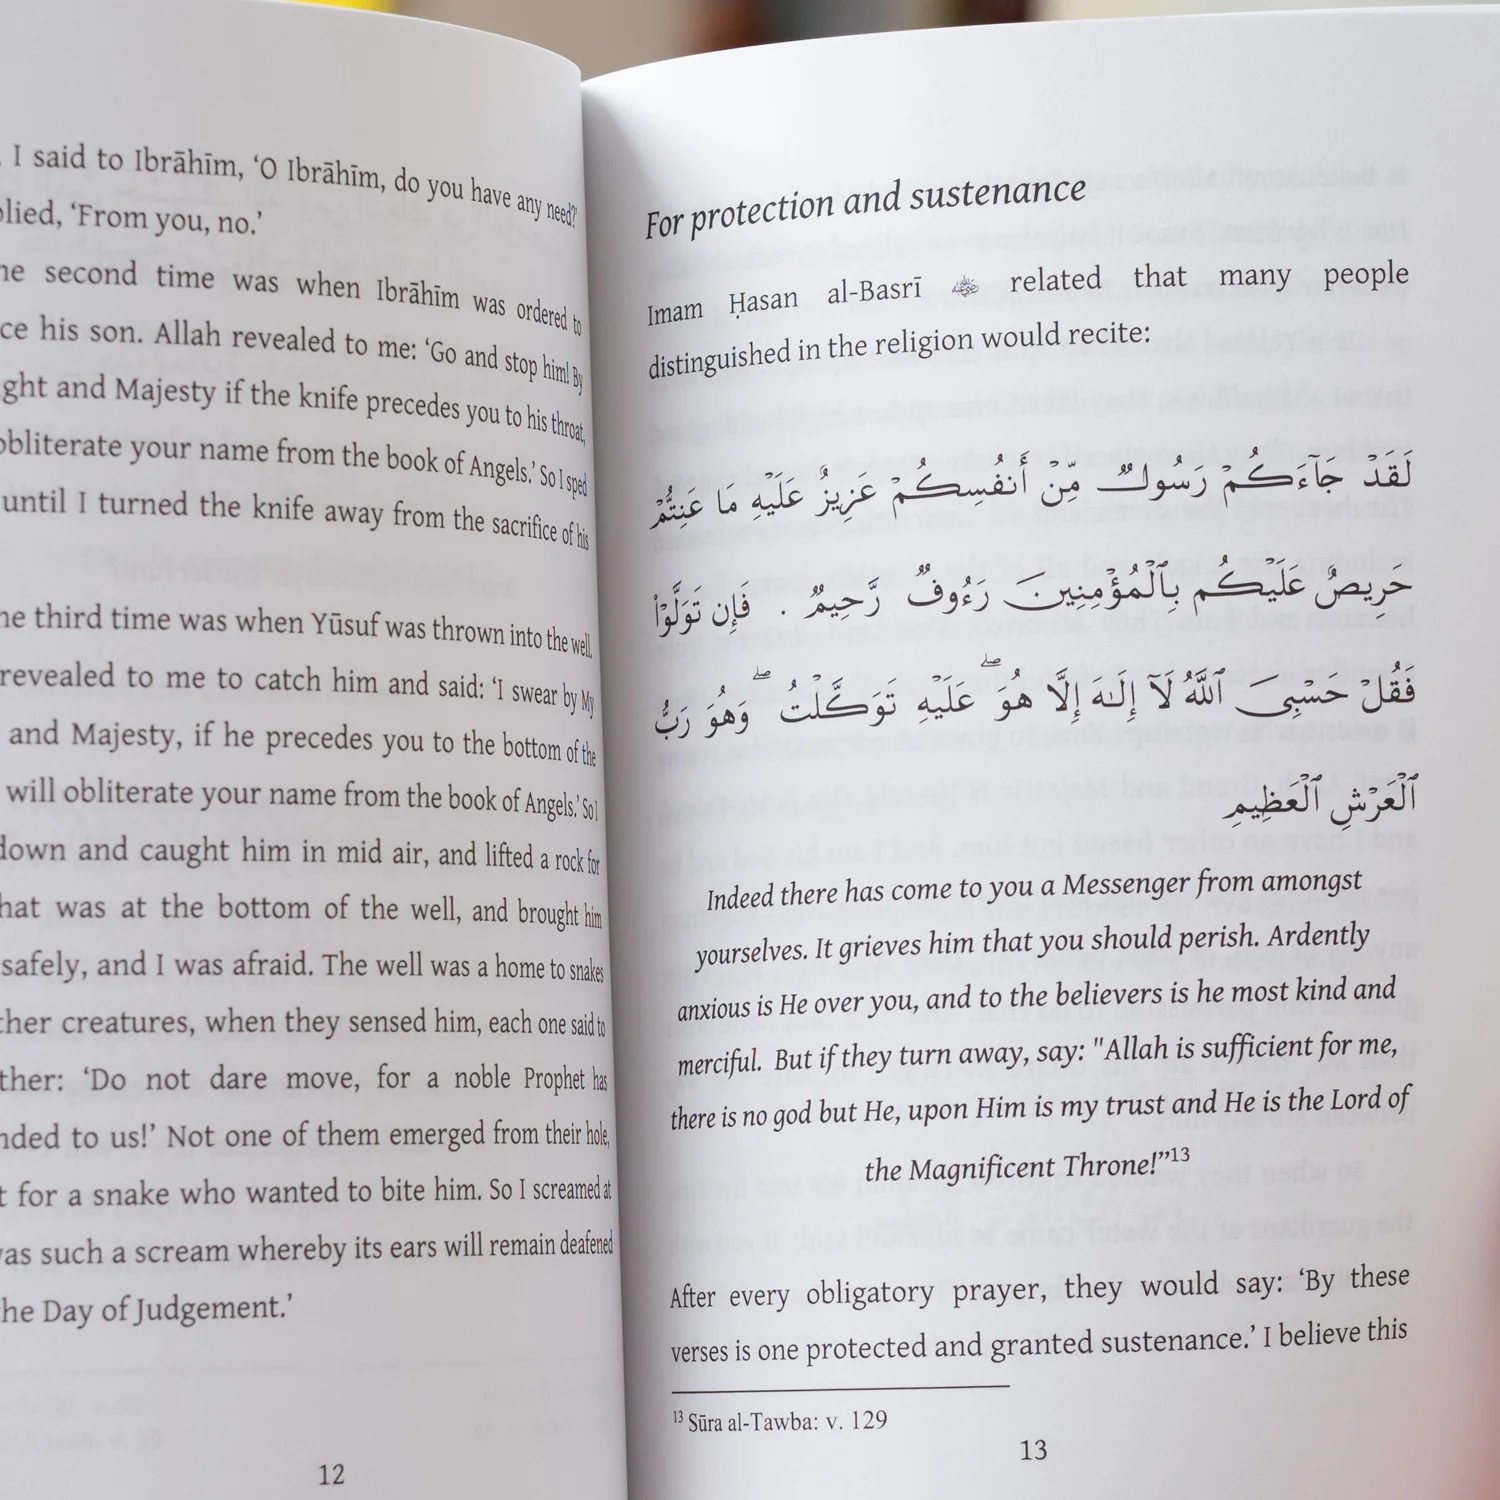 I said to Ibrāhīm, ‘O Ibrāhīm, do you have any need?’
‘From you, no.’
second time was when Ibrāhīm was ordered to
his son. Allah revealed to me: ‘Go and stop him! By
and Majesty if the knife precedes you to his throat,
obliterate your name from the book of Angels.’ So I sped
until I turned the knife away from the sacrifice of his
third time was when Yūsuf was thrown into the well.
revealed to me to catch him and said: ‘I swear by My
and Majesty, if he precedes you to the bottom of the
will obliterate your name from the book of Angels.’ So I
down and caught him in mid air, and lifted a rock for
was at the bottom of the well, and brought him
safely, and I was afraid. The well was a home to snakes
creatures, when they sensed him, each one said to
‘Do not dare move, for a noble Prophet has
to us!’ Not one of them emerged from their hole,
for a snake who wanted to bite him. So I screamed at
such a scream whereby its ears will remain deafened
the Day of Judgement.’
12
For protection and sustenance
Imam Ḥasan al-Basrī related that many people
distinguished in the religion would recite:
لَقَدْ جَآءَكُمْ رَسُولٌ مِّنْ أَنفُسِكُمْ عَزِيزٌ عَلَيْهِ مَا عَنِتُّمْ
حَرِيصٌ عَلَيْكُم بِٱلْمُؤْمِنِينَ رَءُوفٌ رَّحِيمٌ . فَإِن تَوَلَّوْا۟
فَقُلْ حَسْبِىَ ٱللَّهُ لَآ إِلَـٰهَ إِلَّا هُوَ ۖ عَلَيْهِ تَوَكَّلْتُ ۖ وَهُوَ رَبُّ
ٱلْعَرْشِ ٱلْعَظِيمِ
Indeed there has come to you a Messenger from amongst
yourselves. It grieves him that you should perish. Ardently
anxious is He over you, and to the believers is he most kind and
merciful. But if they turn away, say: "Allah is sufficient for me,
there is no god but He, upon Him is my trust and He is the Lord of
the Magnificent Throne!”13
After every obligatory prayer, they would say: ‘By these
verses is one protected and granted sustenance.’ I believe this
13 Sūra al-Tawba: v. 129
13